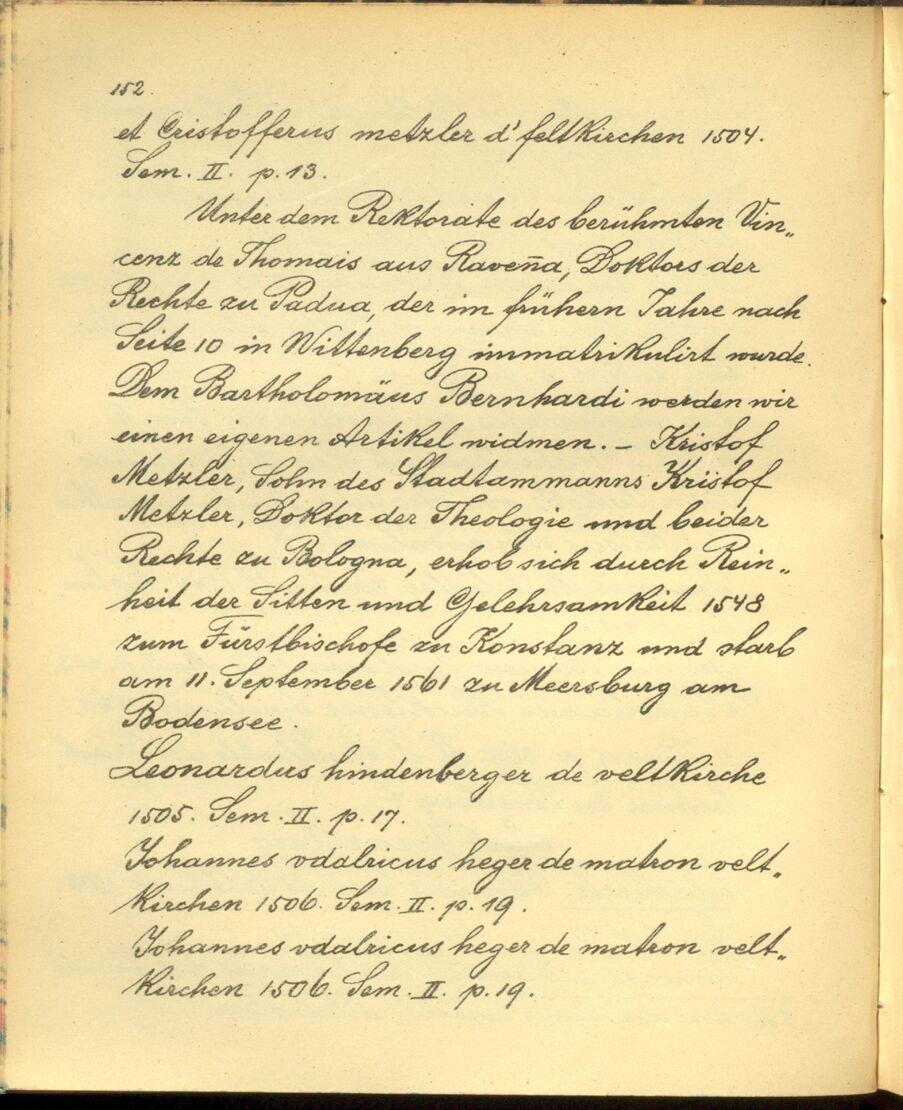 152.
et Cristofferus metzler d' feltkirchen 1504.
Sem. II. p. 13.
Unter dem Rektorate des berühmten Vin„
cenz de Thomais aus Raveña, Doktors der
Rechte zu Padua, der im frühern Jahre nach
Seite 10 in Wittenberg immatrikulirt wurde.
Dem Bartholomäus Bernhardi werden wir
einen eigenen Artikel widmen. – Kristof
Metzler, Sohn des Stadtammanns Kristof
Metzler, Doktor der Theologie und beider
Rechte zu Bologna, erhob sich durch Rein„
heit der Sitten und Gelehrsamkeit 1548
zum Fürstbischofe zu Konstanz und starb
am 11. September 1561 zu Meersburg am
Bodensee.
Leonardus hindenberger de veltkirche
1505. Sem. II. p. 17.
Johannes vdalricus heger de matron velt„
kirchen 1506. Sem. II. p. 19.
Johannes vdalricus heger de matron velt„
kirchen 1506. Sem. II. p. 19.